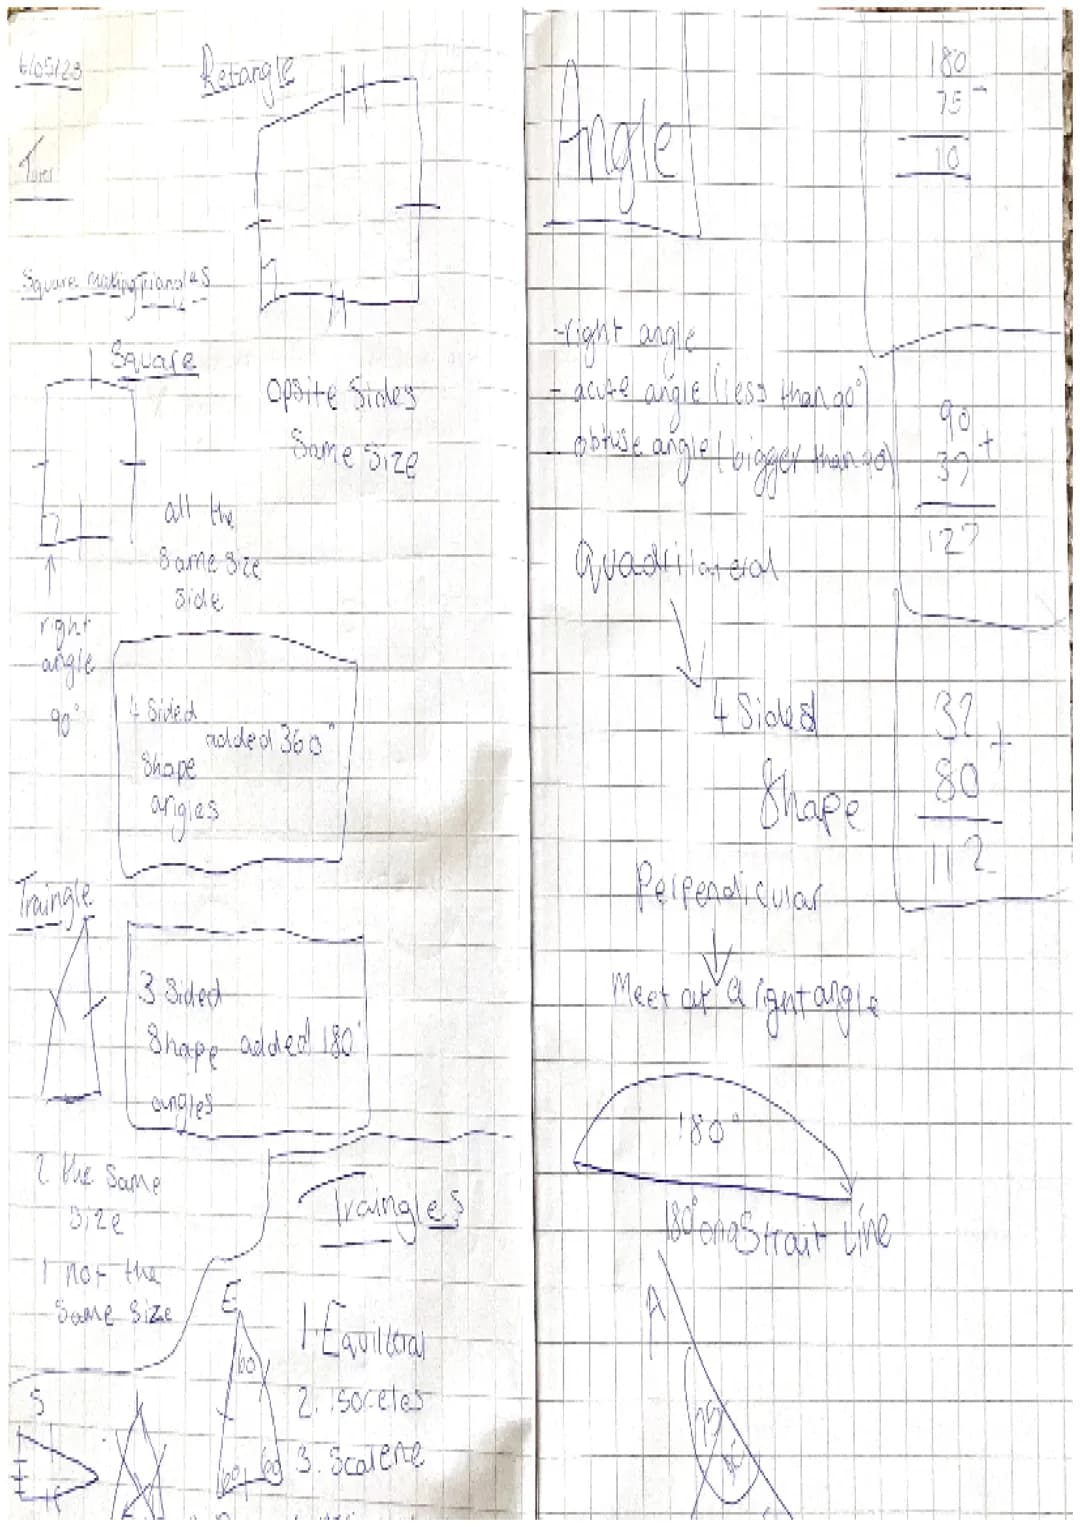 6/05/23
Retangle
Square making Triangles
Square
Opsite Sides
Same Size
all the
Same Size
Side
right
angle
90°
4 Sided
added 360°
Shape
angles
Traingle
3 Sided
Shape added 180°
angles
2 the Same
Size
1 not the
Same Size
Traingles
E
1. Equilteral
60
2. isoceles
3. Scalene
60 60
S
Angle
180
75 -
10
-right angle
- acute angle (less than 90°)
- obtuse angle (bigger than 90)
90
37 +
127
Quadrilateral
4 Sided
Shape
32
80 +
112
Perpendicular
Meet at a right angle
180°
180° on a Strait Line
A
75